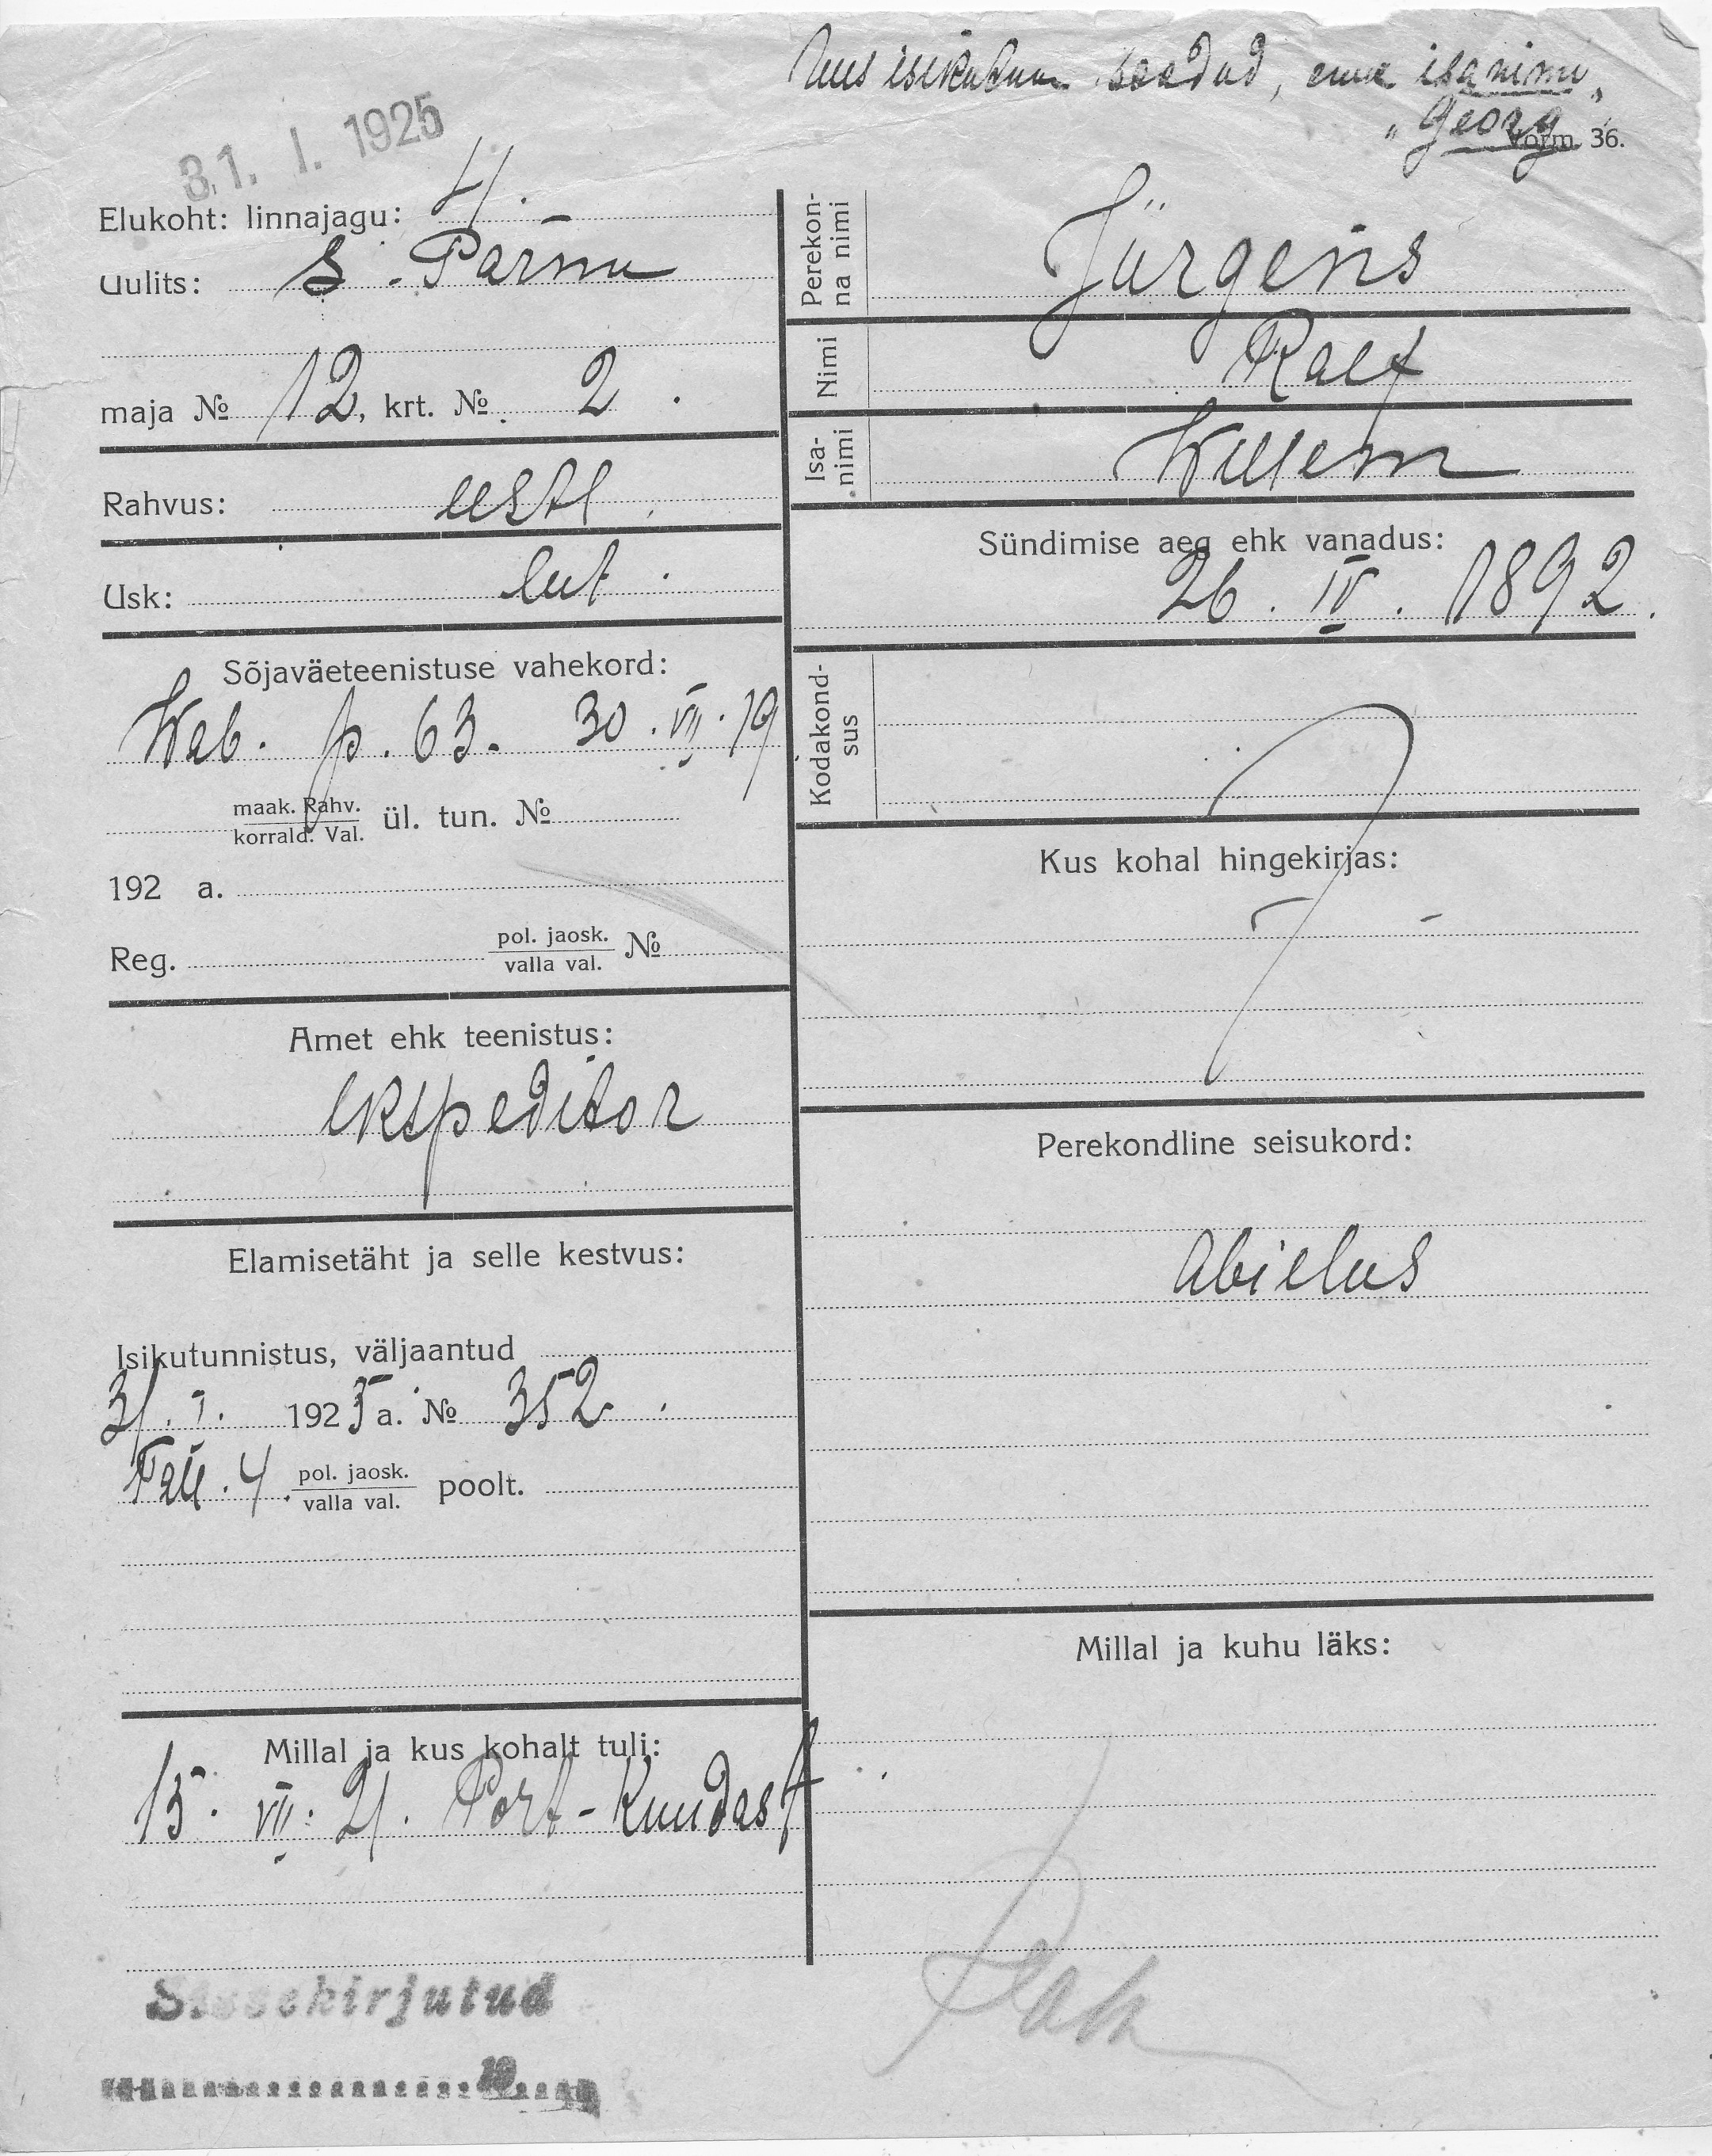 Uus isikutun. saadud, enne isanimi
"Georg"
Vorm 36.
31. I. 1925
Elukoht: linnajagu: 4.
Uulits: S. Pärnu
maja № 12, krt. № 2.
Rahvus: eestl.
Usk: lut.
Sõjaväeteenistuse vahekord:
Wab. p. 63. 30. VII. 19
maak. Rahv.
korrald. Val. ül. tun. №
192 a.
Reg. pol. jaosk.
valla val. №
Amet ehk teenistus:
ekspeditor
Elamisetäht ja selle kestvus:
Isikutunnistus, väljaantud
31. I. 1925 a. № 352.
Tall. 4. pol. jaosk.
valla val. poolt.
Millal ja kus kohalt tuli:
15. VII. 21. Port-Kundast
Sissekirjutud
19
Perekon-
na nimi
Jürgens
Nimi
Ralf
Isa-
nimi
Willem
Sündimise aeg ehk vanadus:
26. IV. 1892.
Kodakond-
sus
Kus kohal hingekirjas:
Perekondline seisukord:
Abielus
Millal ja kuhu läks: